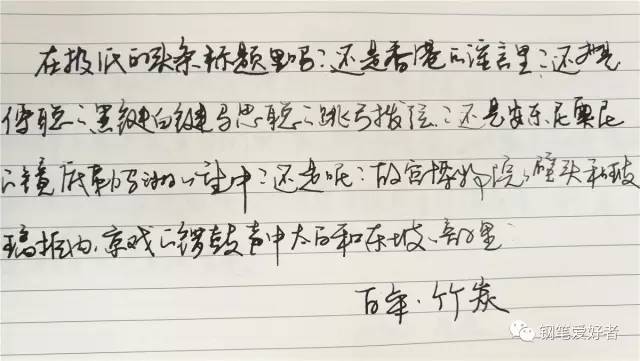 在报纸的头条标题里吗?还是香港的谣言里?还是
傅聪的黑键白键马思聪的跳弓拨弦?还是安东尼奥尼
的镜底勒马洲的望中?还是呢?故宫博物院的壁头和玻
璃柜内,京戏的锣鼓声中太白和东坡的韵里?
百年·竹炭
钢笔爱好者